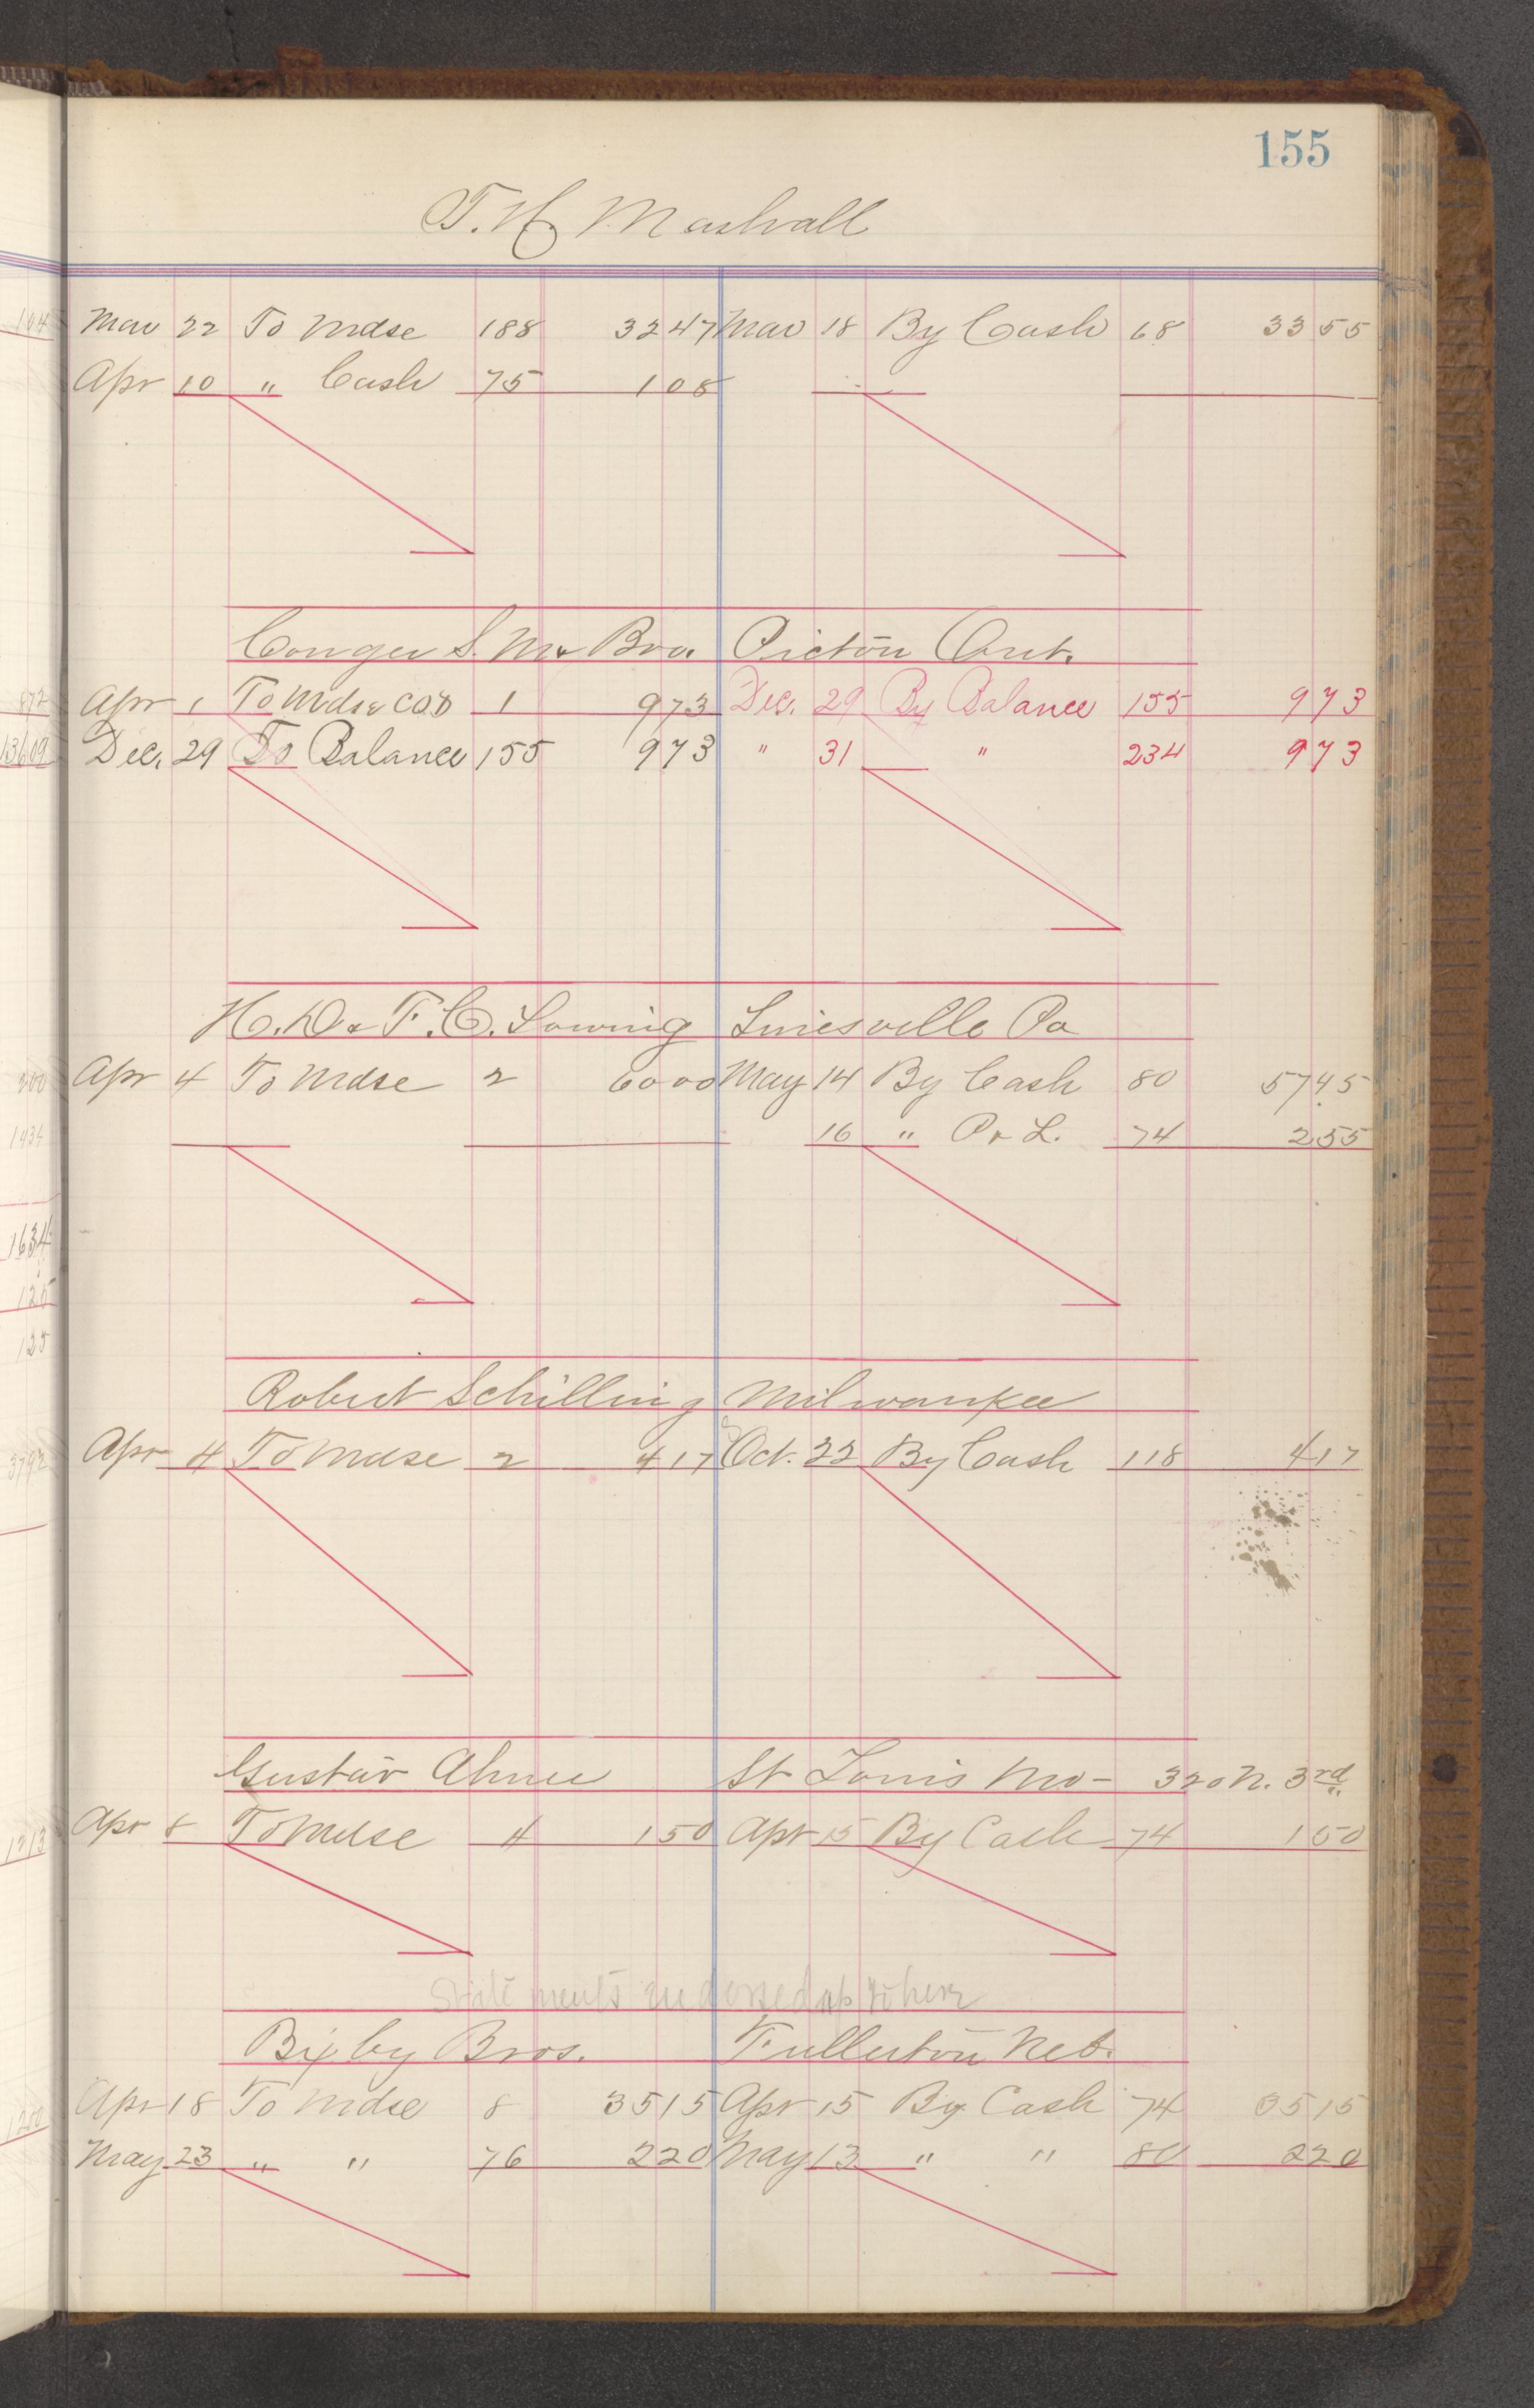 155
T. H. Mashall
Mar 22 To Mdse 188 3247 Mar 18 By Cash 68 3355
Apr 10 " Cash 75 108
Conger S. M & Bro. Picton Ont.
Apr 1 To Mdse COD 1 973 Dec. 29 By Balance 155 973
Dec. 29 To Balance 155 973 " 31 " 234 973
H. D. & F. C. Lowing Linesville Pa
Apr 4 To Mdse 2 6000 May 14 By Cash 80 5745
16 " P & L. 74 255
Robert Schilling Milwaukee
Apr 4 To Mdse 2 417 Oct. 22 By Cash 118 417
Gustav St Louis Mo - 320 N. 3rd
Apr 8 To Mdse 4 150 Apr 15 By Cash 74 150
Statements up to here
Bixby Bros. Fullerton Neb.
Apr 18 To Mdse 8 3515 Apr 15 By Cash 74 3515
May 23 " " 76 220 May 13 " " 80 220